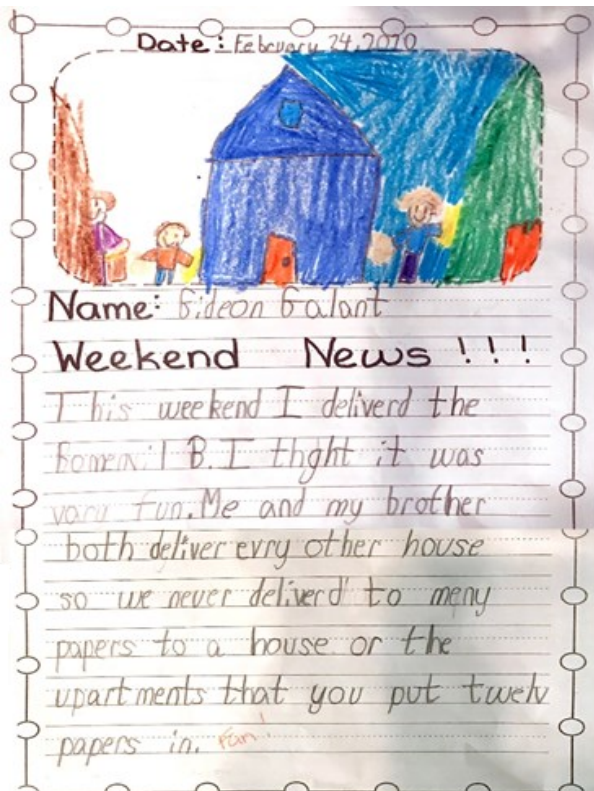 Date: February 24, 2020
Name: Gideon Galant
Weekend News!!!
This weekend I deliverd the
B. I thght it was
vary fun. Me and my brother
both deliver evry other house
so we never deliverd to meny
papers to a house or the
upartments that you put twelv
papers in. Fun!